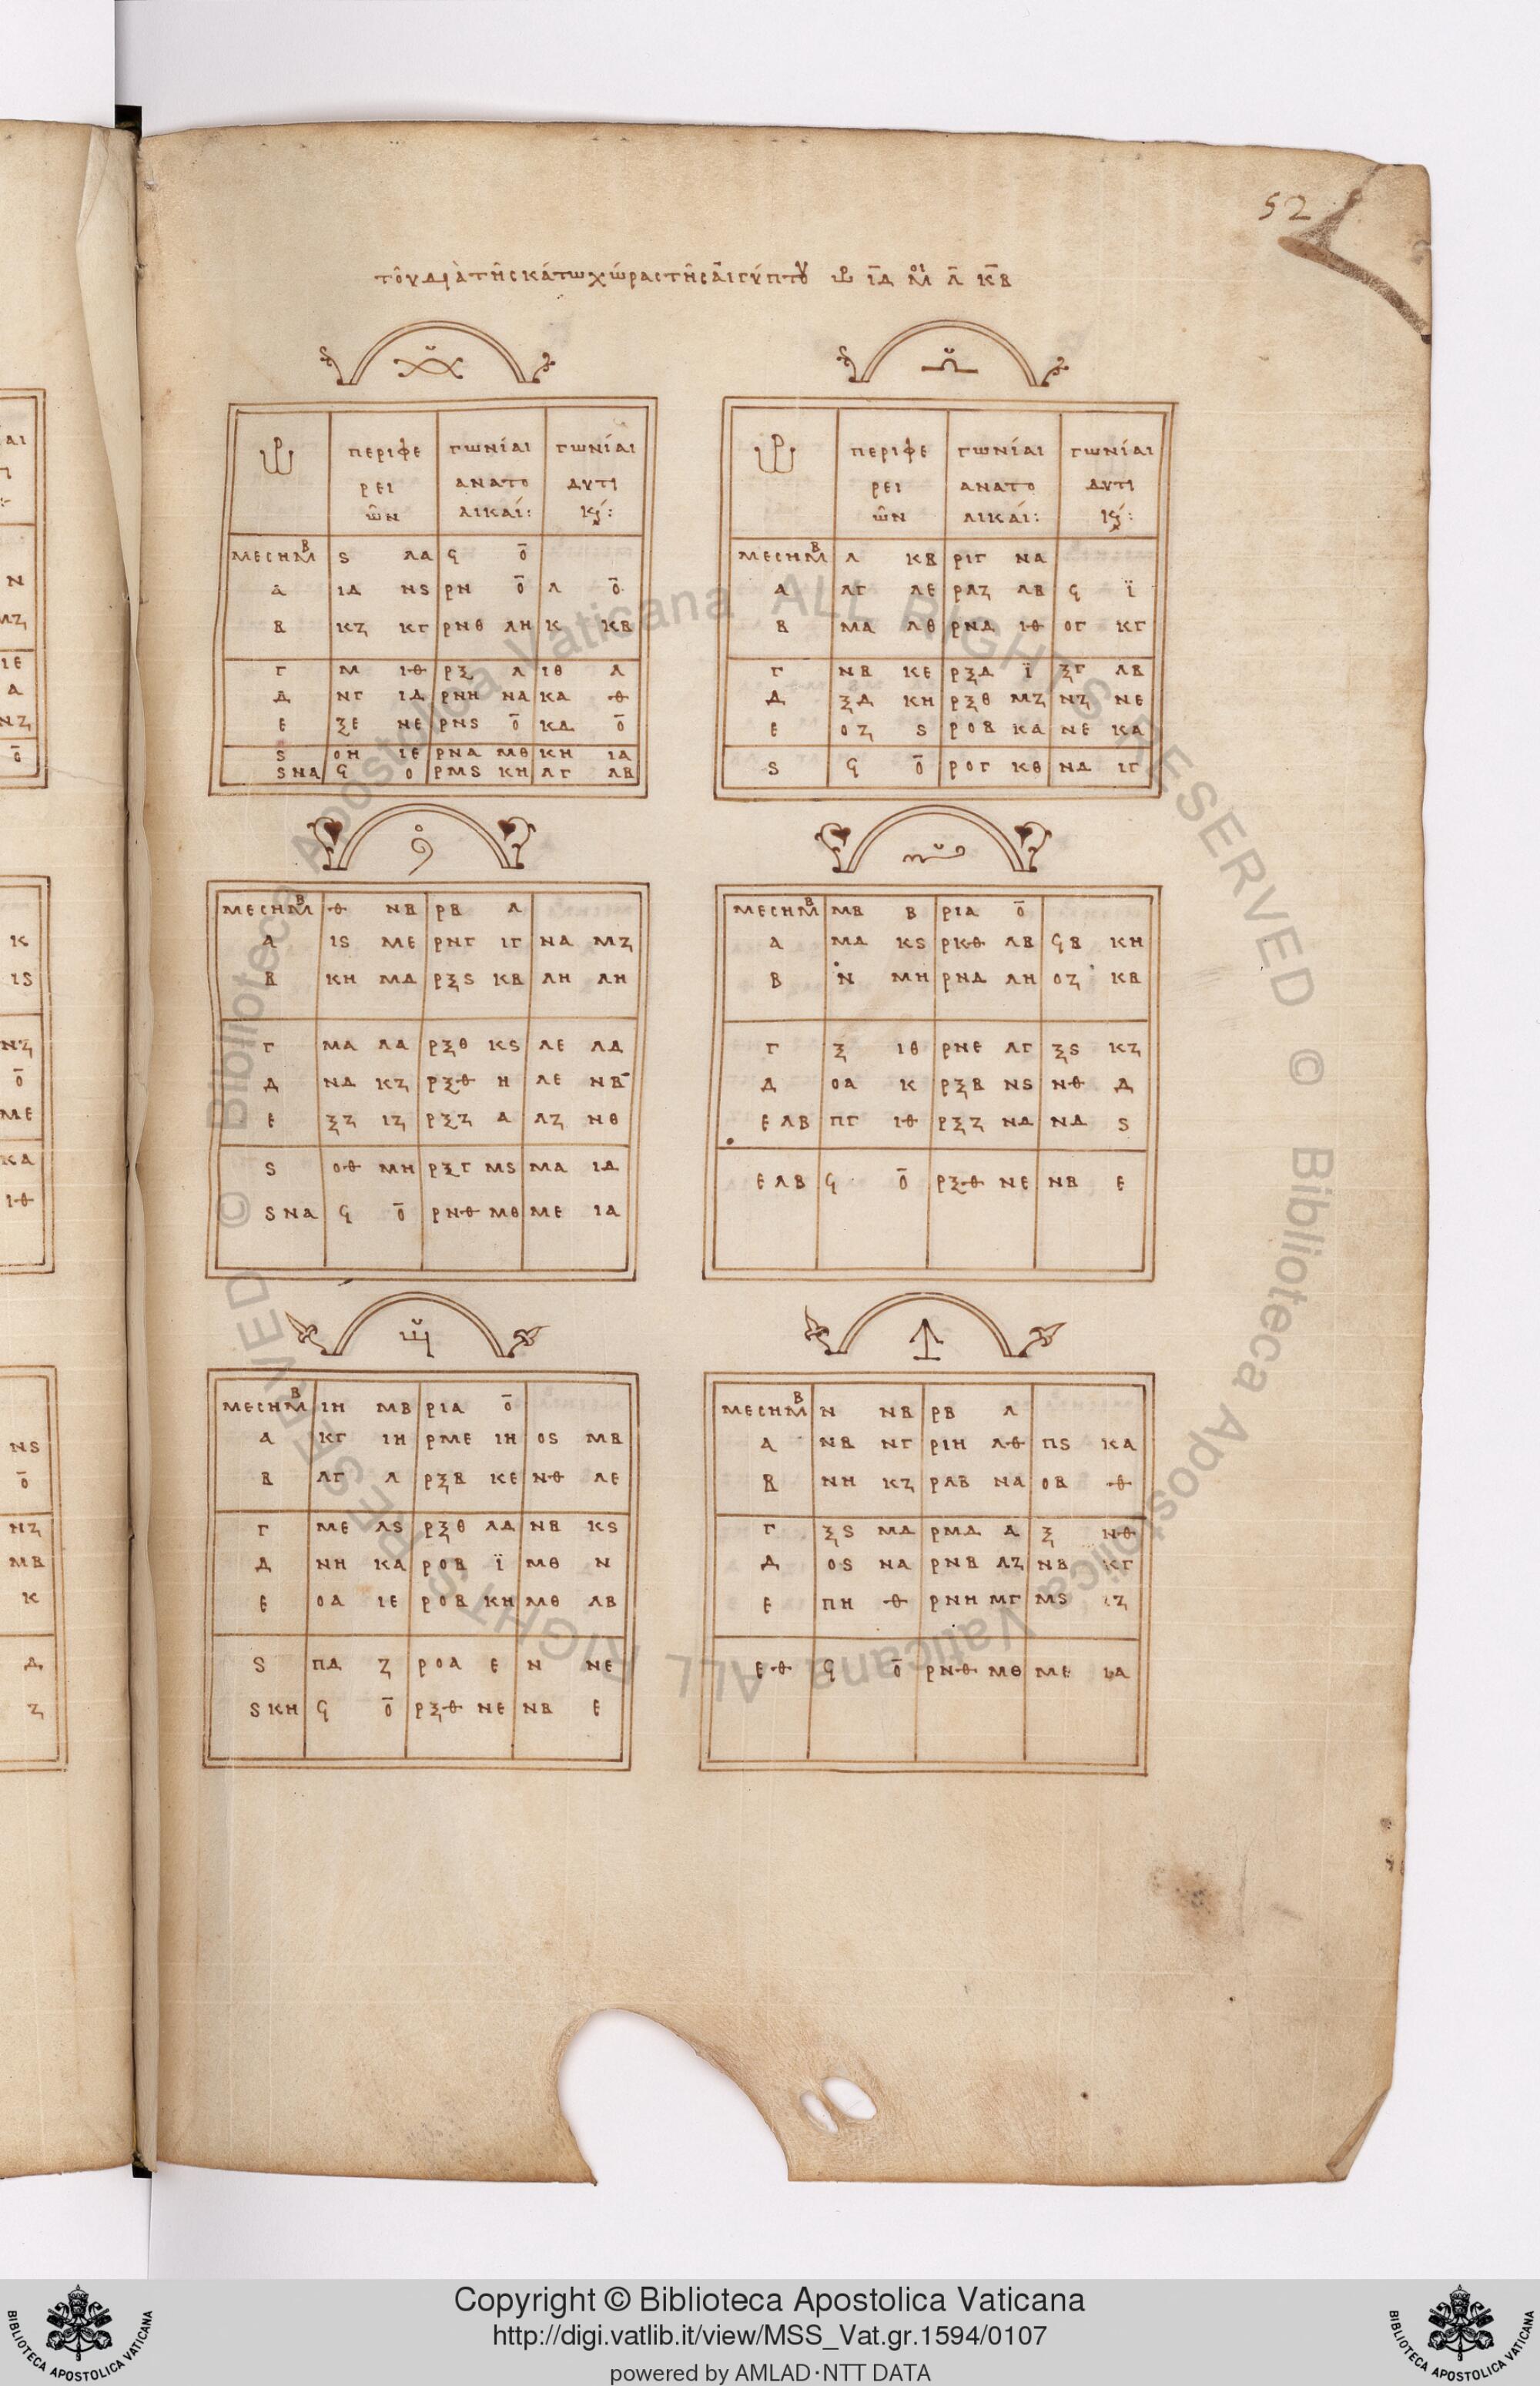 52
τοῦ διὰ τῆς κάτω χώρας τῆς αἰγύπτου ὡρ ΙΔ Μοι Λ ΚΒ
ΠΕΡΙΦΕ ΓΩΝΊΑΙ ΓΩΝΊΑΙ
ΡΕΙ ΑΝΑΤΟ ΔΥΤΙ
ῶΝ ΛΙΚΑΊ: Κ:
ΜΕCΗΜΒ Ϛ ΛΑ Ϟ Ο̄
Α ΙΔ ΝϚ ΡΝ Ο̄ Λ Ο̄
Β ΚΖ ΚΓ ΡΝΘ ΛΗ Κ ΚΒ
Γ Μ ΙΘ ΡΞ Λ ΙΘ Λ
Δ ΝΓ ΙΔ ΡΝΗ ΝΑ ΚΑ Θ
Ε ΞΕ ΝΕ ΡΝϚ Ο̄ ΚΔ Ο̄
Ϛ ΟΗ ΙΕ ΡΝΑ ΜΘ ΚΗ ΙΑ
Ϛ ΝΑ Ϟ Ο ΡΜϚ ΚΗ ΛΓ ΛΒ
ΠΕΡΙΦΕ ΓΩΝΊΑΙ ΓΩΝΊΑΙ
ΡΕΙ ΑΝΑΤΟ ΔΥΤΙ
ῶΝ ΛΙΚΑΊ: Κ:
ΜΕCΗΜΒ Λ ΚΒ ΡΙΓ ΝΑ
Α ΛΓ ΛΕ ΡΛΖ ΛΒ Ϟ Ϊ
Β ΜΑ ΛΘ ΡΝΔ ΙΘ ΟΓ ΚΓ
Γ ΝΒ ΚΕ ΡΞΔ Ϊ ΞΓ ΛΒ
Δ ΞΔ ΚΗ ΡΞΘ ΜΖ ΝΖ ΝΕ
Ε ΟΖ Ϛ ΡΟΒ ΚΑ ΝΕ ΚΑ
Ϛ Ϟ Ο̄ ΡΟΓ ΚΘ ΝΔ ΙΓ
ΜΕCΗΜΒ Θ ΝΒ ΡΒ Λ
Α ΙϚ ΜΕ ΡΝΓ ΙΓ ΝΑ ΜΖ
Β ΚΗ ΜΔ ΡΞϚ ΚΒ ΛΗ ΛΗ
Γ ΜΑ ΛΑ ΡΞΘ ΚϚ ΛΕ ΛΔ
Δ ΝΔ ΚΖ ΡΞΘ Η ΛΕ ΝΒ
Ε ΞΖ ΙΖ ΡΞΖ Α ΛΖ ΝΘ
Ϛ ΟΘ ΜΗ ΡΞΓ ΜϚ ΜΑ ΙΔ
Ϛ ΝΑ Ϟ Ο̄ ΡΝΘ ΜΘ ΜΕ ΙΑ
ΜΕCΗΜΒ ΜΒ Β ΡΙΑ Ο̄
Α ΜΔ ΚϚ ΡΚΘ ΛΒ ϞΒ ΚΗ
Β Ν ΜΗ ΡΝΔ ΛΗ ΟΖ ΚΒ
Γ Ξ ΙΘ ΡΝΕ ΛΓ ΞϚ ΚΖ
Δ ΟΑ Κ ΡΞΒ ΝϚ ΝΘ Δ
Ε ΛΒ ΠΓ ΙΘ ΡΞΖ ΝΔ ΝΔ Ϛ
Ε ΛΒ Ϟ Ο̄ ΡΞΘ ΝΕ ΝΒ Ε
ΜΕCΗΜΒ ΙΗ ΜΒ ΡΙΑ Ο̄
Α ΚΓ ΙΗ ΡΜΕ ΙΗ ΟϚ ΜΒ
Β ΛΓ Λ ΡΞΒ ΚΕ ΝΘ ΛΕ
Γ ΜΕ ΛϚ ΡΞΘ ΛΔ ΝΒ ΚϚ
Δ ΝΗ ΚΑ ΡΟΒ Ϊ ΜΘ Ν
Ε ΟΑ ΙΕ ΡΟΒ ΚΗ ΜΘ ΛΒ
Ϛ ΠΔ Ζ ΡΟΑ Ε Ν ΝΕ
Ϛ ΚΗ Ϟ Ο̄ ΡΞΘ ΝΕ ΝΒ Ε
ΜΕCΗΜΒ Ν ΝΒ ΡΒ Λ
Α ΝΒ ΝΓ ΡΙΗ ΛΘ ΠϚ ΚΑ
Β ΝΗ ΚΖ ΡΛΒ ΝΑ ΟΒ Θ
Γ ΞϚ ΜΔ ΡΜΔ Α Ξ ΝΘ
Δ ΟϚ ΝΑ ΡΝΒ ΛΖ ΝΒ ΚΓ
Ε ΠΗ Θ ΡΝΗ ΜΓ ΜϚ ΙΖ
Ε Θ Ϟ Ο̄ ΡΝΘ ΜΘ ΜΕ ΙΑ
© Biblioteca Apostolica Vaticana ALL RIGHTS RESERVED © Biblioteca Apostolica Vaticana ALL RIGHTS RESERVED
Copyright © Biblioteca Apostolica Vaticana
http://digi.vatlib.it/view/MSS_Vat.gr.1594/0107
powered by AMLAD·NTT DATA
BIBLIOTECA APOSTOLICA VATICANA
BIBLIOTECA APOSTOLICA VATICANA